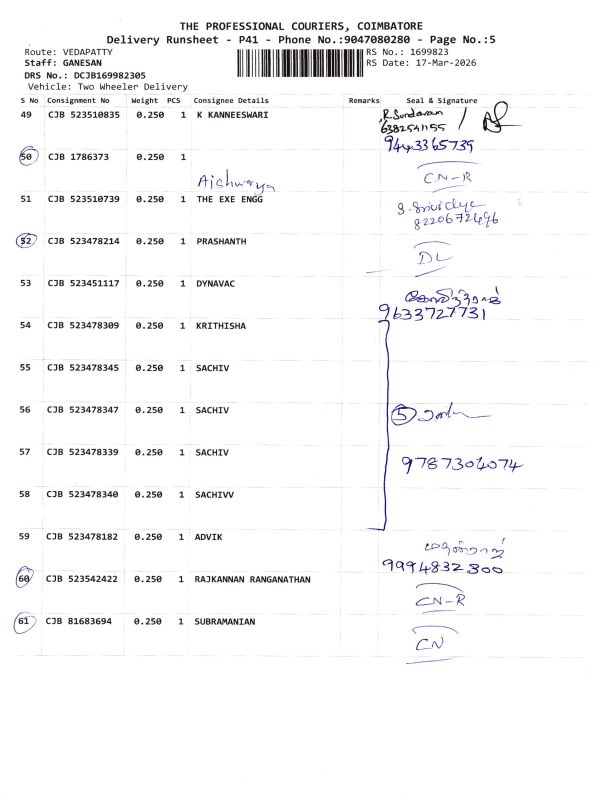 THE PROFESSIONAL COURIERS, COIMBATORE
Delivery Runsheet - P41 - Phone No.:9047080280 - Page No.:5
Route: VEDAPATTY RS No.: 1699823
Staff: GANESAN RS Date: 17-Mar-2026
DRS No.: DCJB169982305
Vehicle: Two Wheeler Delivery
S No Consignment No Weight PCS Consignee Details Remarks Seal & Signature
49 CJB 523510835 0.250 1 K KANNEESWARI R. Sundaran
6382541155
9443365739
50 CJB 1786373 0.250 1
Aishwarya CN-R
51 CJB 523510739 0.250 1 THE EXE ENGG S. Srividya
8220672496
52 CJB 523478214 0.250 1 PRASHANTH
DL
53 CJB 523451117 0.250 1 DYNAVAC
9633727731
54 CJB 523478309 0.250 1 KRITHISHA
55 CJB 523478345 0.250 1 SACHIV
56 CJB 523478347 0.250 1 SACHIV 5
57 CJB 523478339 0.250 1 SACHIV 9787304074
58 CJB 523478340 0.250 1 SACHIVV
59 CJB 523478182 0.250 1 ADVIK
9994832300
60 CJB 523542422 0.250 1 RAJKANNAN RANGANATHAN
CN-R
61 CJB 81683694 0.250 1 SUBRAMANIAN
CN